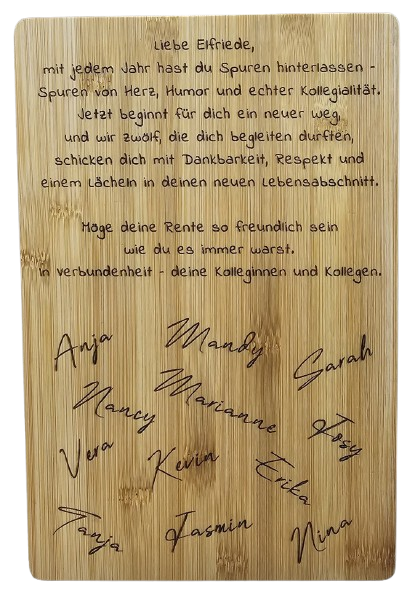 Liebe Elfriede,
mit jedem Jahr hast du Spuren hinterlassen -
Spuren von Herz, Humor und echter Kollegialität.
Jetzt beginnt für dich ein neuer Weg,
und wir zwölf, die dich begleiten durften,
schicken dich mit Dankbarkeit, Respekt und
einem Lächeln in deinen neuen Lebensabschnitt.
Möge deine Rente so freundlich sein
wie du es immer warst.
In Verbundenheit - deine Kolleginnen und Kollegen.
Anja Mandy Sarah
Nancy Marianne Josy
Vera Kevin Erika
Tanja Jasmin Nina